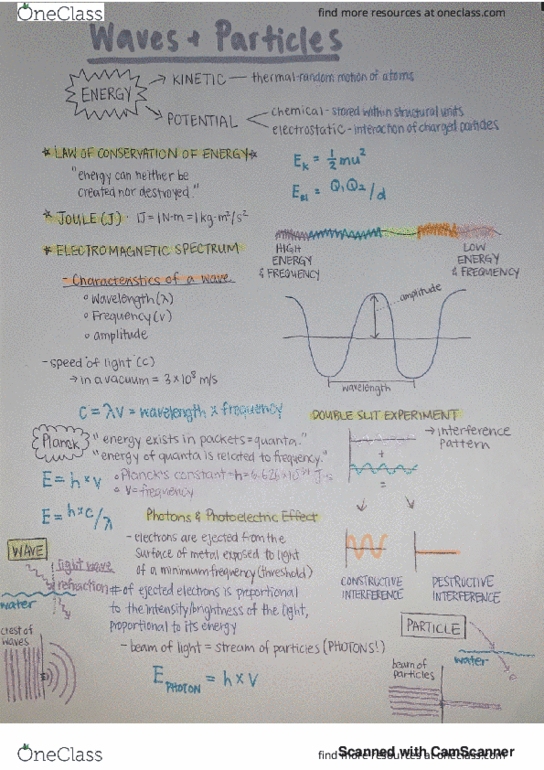 OneClass
find more resources at oneclass.com
Waves + Particles
ENERGY
KINETIC — thermal-random motion of atoms
POTENTIAL
chemical - stored within structural units
electrostatic - interaction of charged particles
* LAW OF CONSERVATION OF ENERGY *
"energy can neither be
created nor destroyed."
Eₖ = ½mu²
= Q₁Q₂/d
* JOULE (J) 1J = 1N·m = 1kg·m²/s²
* ELECTROMAGNETIC SPECTRUM
HIGH
ENERGY
& FREQUENCY
LOW
ENERGY
& FREQUENCY
- Characteristics of a wave
° Wavelength (λ)
° Frequency (v)
° amplitude
amplitude
wavelength
- speed of light (c)
→ in a vacuum = 3 x 10⁸ m/s
C = λv = wavelength x frequency
DOUBLE SLIT EXPERIMENT
→ interference
pattern
+
=
Planck
"energy exists in packets = quanta."
"energy of quanta is related to frequency."
E = h x v
° Planck's constant = h = 6.626 x 10⁻³⁴ J·s
° v = frequency
E = h x c/λ
Photons & Photoelectric Effect
- electrons are ejected from the
surface of metal exposed to light
of a minimum frequency (threshold)
# of ejected electrons is proportional
to the intensity/brightness of the light,
proportional to its energy
- beam of light = stream of particles (PHOTONS!)
E PHOTON = h x v
CONSTRUCTIVE
INTERFERENCE
DESTRUCTIVE
INTERFERENCE
WAVE
light wave
refraction
water
crest of
waves
PARTICLE
water
beam of
particles
OneClass
find more resources at oneclass.com
Scanned with CamScanner